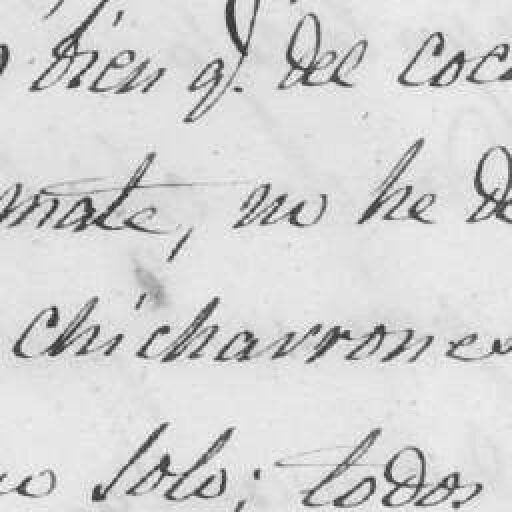 bien q. del coc
mate, no he de
chicharrones
solo; todos